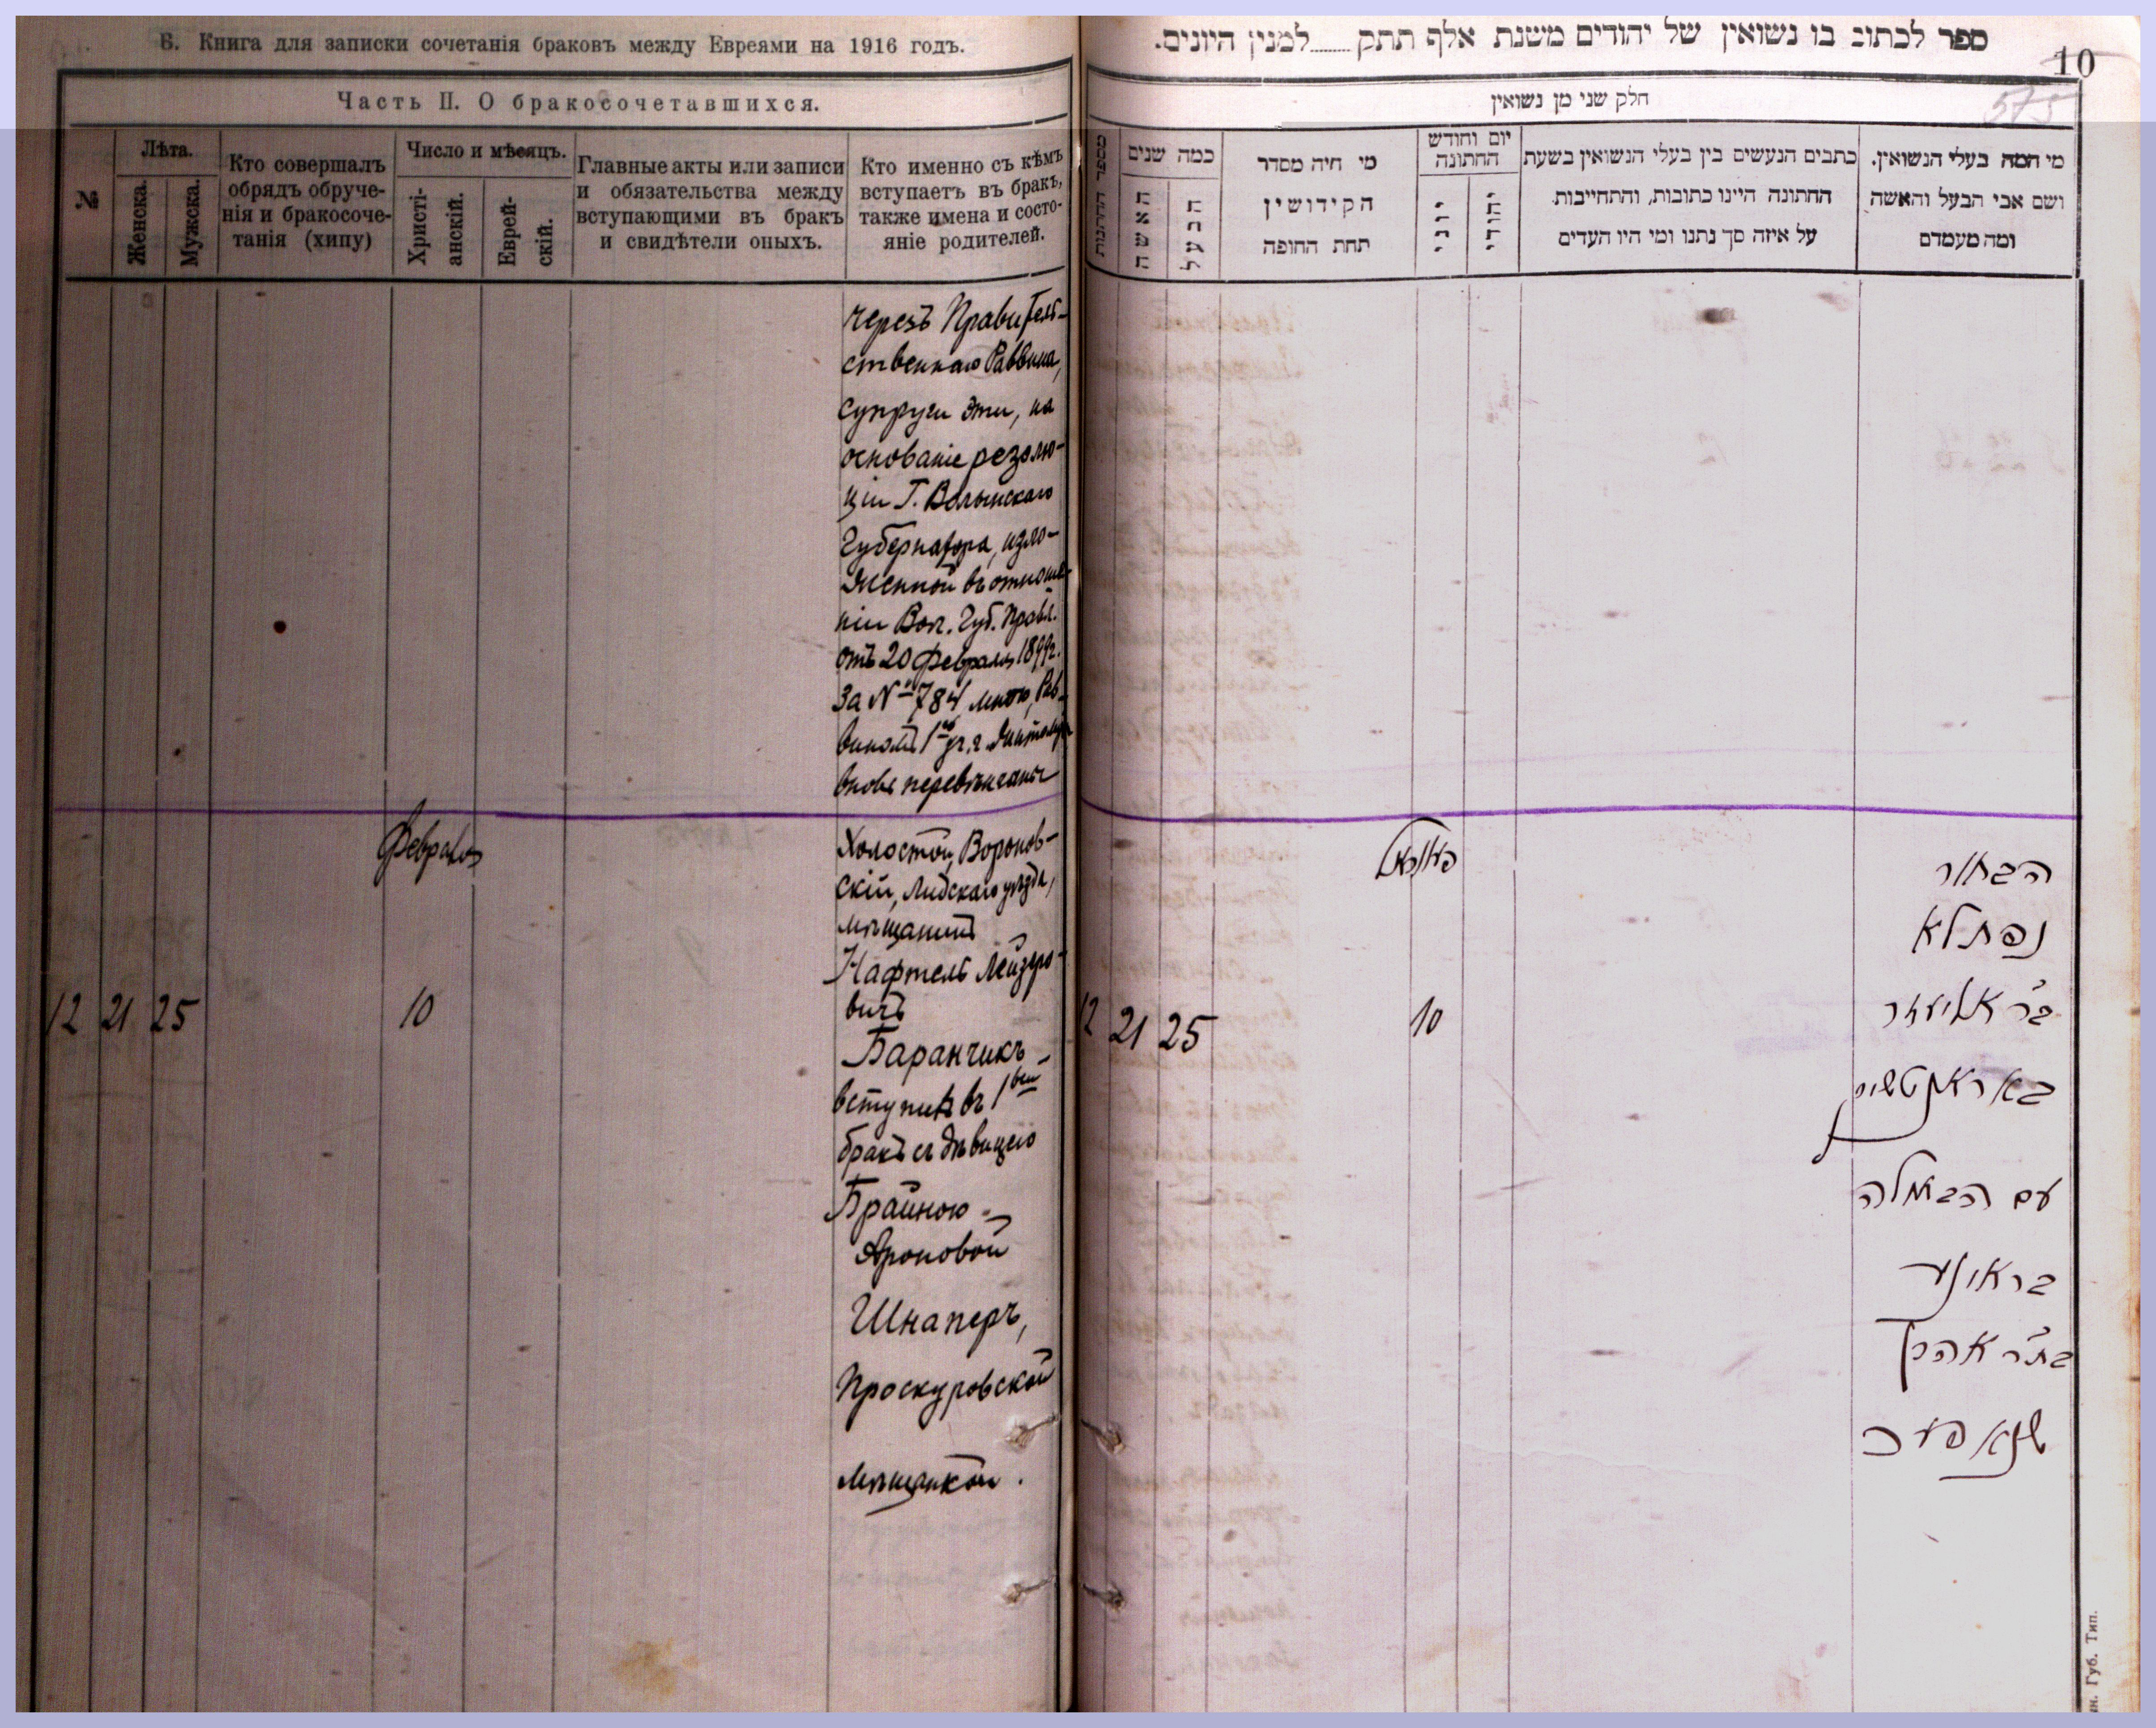 Б. Книга для записки сочетанія браковъ между Евреями на 1916 годъ.
Часть II. О бракосочетавшихся.
№
Лѣта.
Женска.
Мужска.
Кто совершалъ
обрядъ обруче-
нія и бракосоче-
танія (хипу)
Число и мѣсяцъ.
Христі-
анскій.
Еврей-
скій.
Главные акты или записи
и обязательства между
вступающими въ бракъ
и свидѣтели оныхъ.
Кто именно съ кѣмъ
вступаетъ въ бракъ,
также имена и состо-
яніе родителей.
черезъ Правитель-
ственнаго Раввина,
супруги эти, на
основаніе резолю-
ціи Г. Волынскаго
Губернатора, изло-
женной въ отноше-
ніи Вол. Губ. Правл.
отъ 20 февраля 1899г.
за № 784 мною, Рав-
виномъ 1го уч. г. Житомира
вновь перевѣнчаны
Февраля
Холостой, Воронов-
скій, Лидскаго уѣзда,
мѣщанинъ
Нафтель Лейзеро-
вичъ
12 21 25 10
Баранчикъ
вступилъ въ 1вый
бракъ съ дѣвицею
Брайною
Ароновой
Шнаперъ,
Проскуровской
мѣщанкой.
ספר לכתוב בו נשואין של יהודים משנת אלף תתק למנין היונים.
10
575
חלק שני מן נשואין
מי המה בעלי הנשואין.
ושם אבי הבעל והאשה
ומה מעמדם
כתבים הנעשים בין בעלי הנשואין בשעת
החתונה היינו כתובות, והתחייבות
על איזה סך נתנו ומי היו העדים
יום וחודש
החתונה
יהודי
יוני
מי חיה מסדר
הקידושין
תחת החופה
כמה שנים
הבעל
האשה
מספר החתונות
פעווראל
הבחור
נפתלא
ב"ר אליעזר
באראנטשיק
12 21 25 10
עם הבתולה
בראינע
בת"ר אהרן
שנאפער
Губ. Тип.